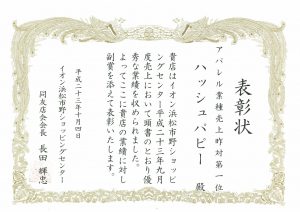 表彰状
アパレル業種売上昨対第一位
ハッシュパピー 殿
貴店はイオン浜松市野ショッピ
ングセンター平成二十三年九月
度売上において頭書のとおり優
秀な業績を収められました。
よってここに貴店の業績に対し
副賞を添えて表彰いたします。
平成二十三年十月四日
イオン浜松市野ショッピングセンター
同友店会会長 長田 輝忠